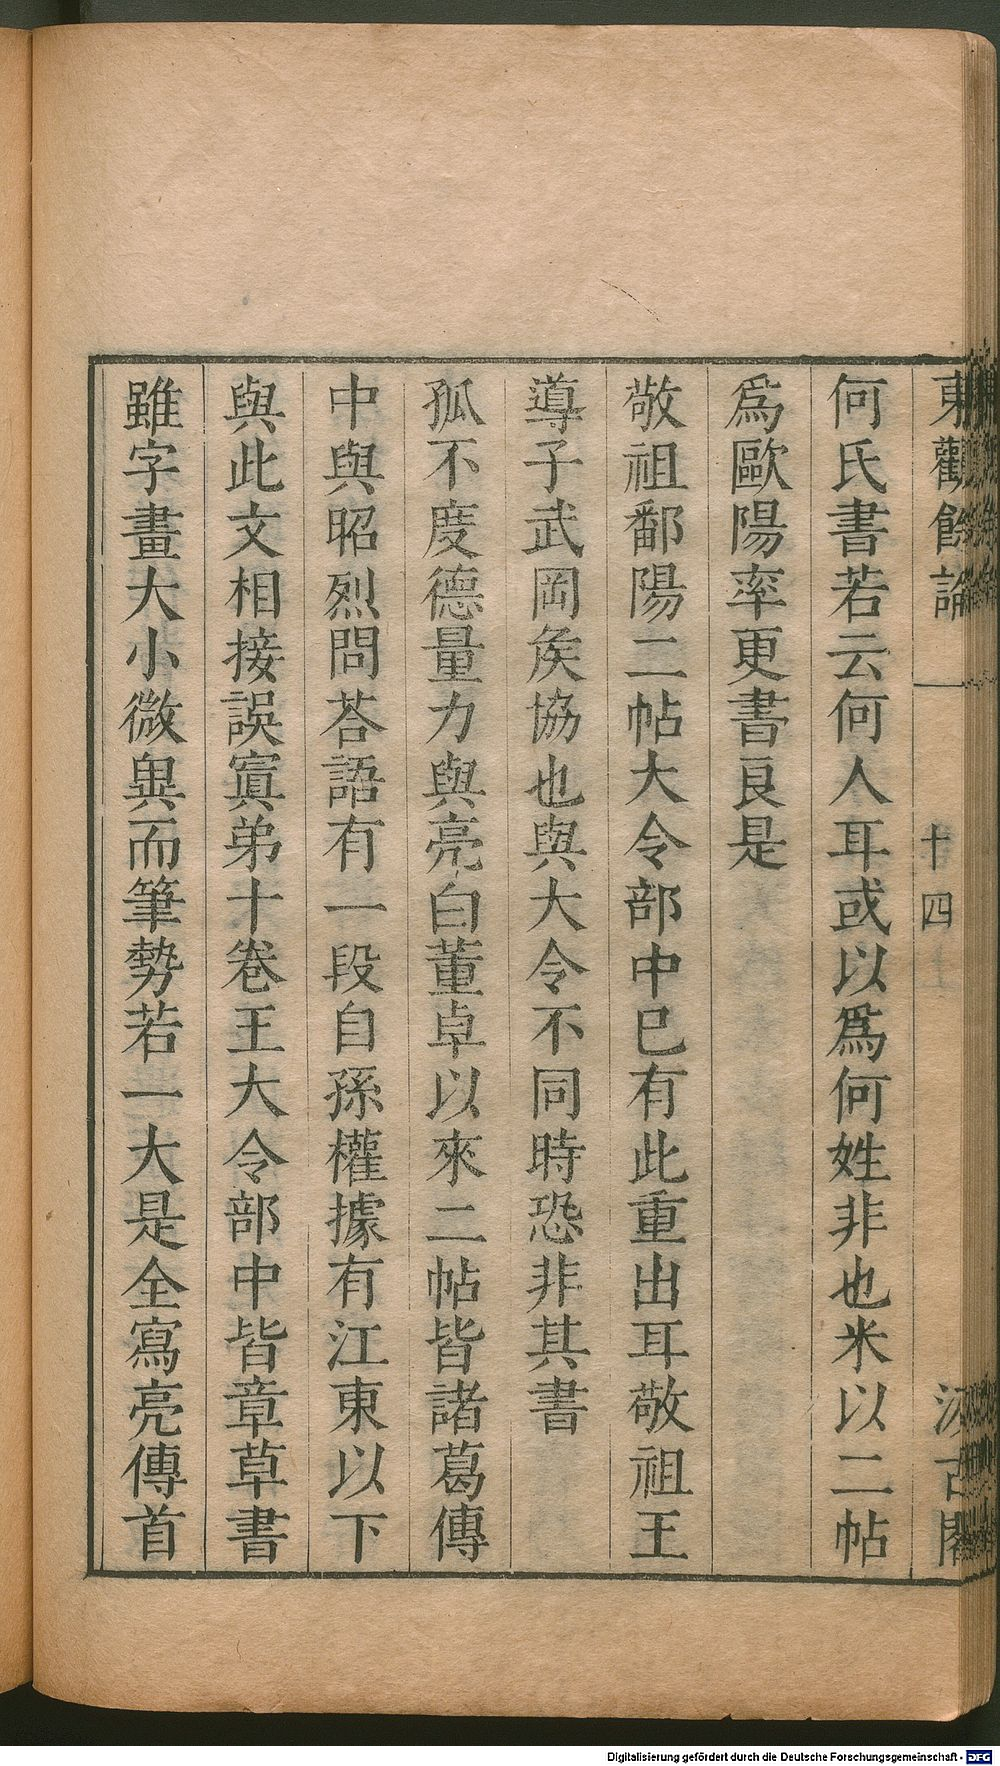 東觀餘論
十四
汲古閣
何氏書若云何人耳或以爲何姓非也米以二帖
爲歐陽率更書良是
敬祖鄱陽二帖大令部中已有此重出耳敬祖王
導子武岡矦協也與大令不同時恐非其書
孤不度德量力與亮白董卓以來二帖皆諸葛傳
中與昭烈問荅語有一段自孫權據有江東以下
與此文相接誤寘弟十卷王大令部中皆章草書
雖字畫大小微異而筆勢若一大是全寫亮傳首
Digitalisierung gefördert durch die Deutsche Forschungsgemeinschaft - DFG